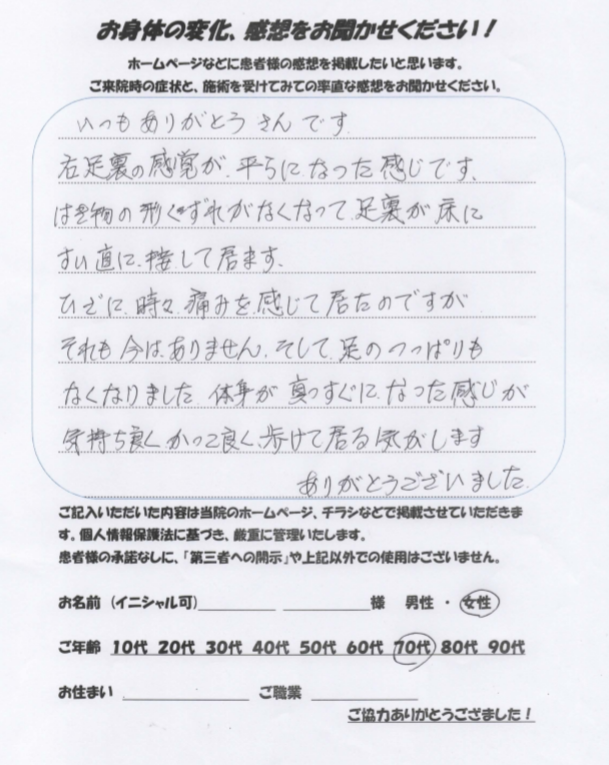 お身体の変化、感想をお聞かせください！
ホームページなどに患者様の感想を掲載したいと思います。
ご来院時の症状と、施術を受けてみての率直な感想をお聞かせください。
いつもありがとうさんです
右足裏の感覚が、平らになった感じです、
はき物の形くずれがなくなって、足裏が床に
すい直に、接して居ます、
ひざに、時々、痛みを感じて居たのですが
それも今は、ありません、そして、足のつっぱりも
なくなりました 体身が真っすぐに、なった感じが
気持ち良く かっこ良く、歩けて居る気がします
ありがとうございました
ご記入いただいた内容は当院のホームページ、チラシなどで掲載させていただきま
す。個人情報保護法に基づき、厳重に管理いたします。
患者様の承諾なしに、「第三者への開示」や上記以外での使用はございません。
お名前（イニシャル可） 様 男性 ・ 女性
ご年齢 10代 20代 30代 40代 50代 60代 70代 80代 90代
お住まい ご職業
ご協力ありがとうござました！